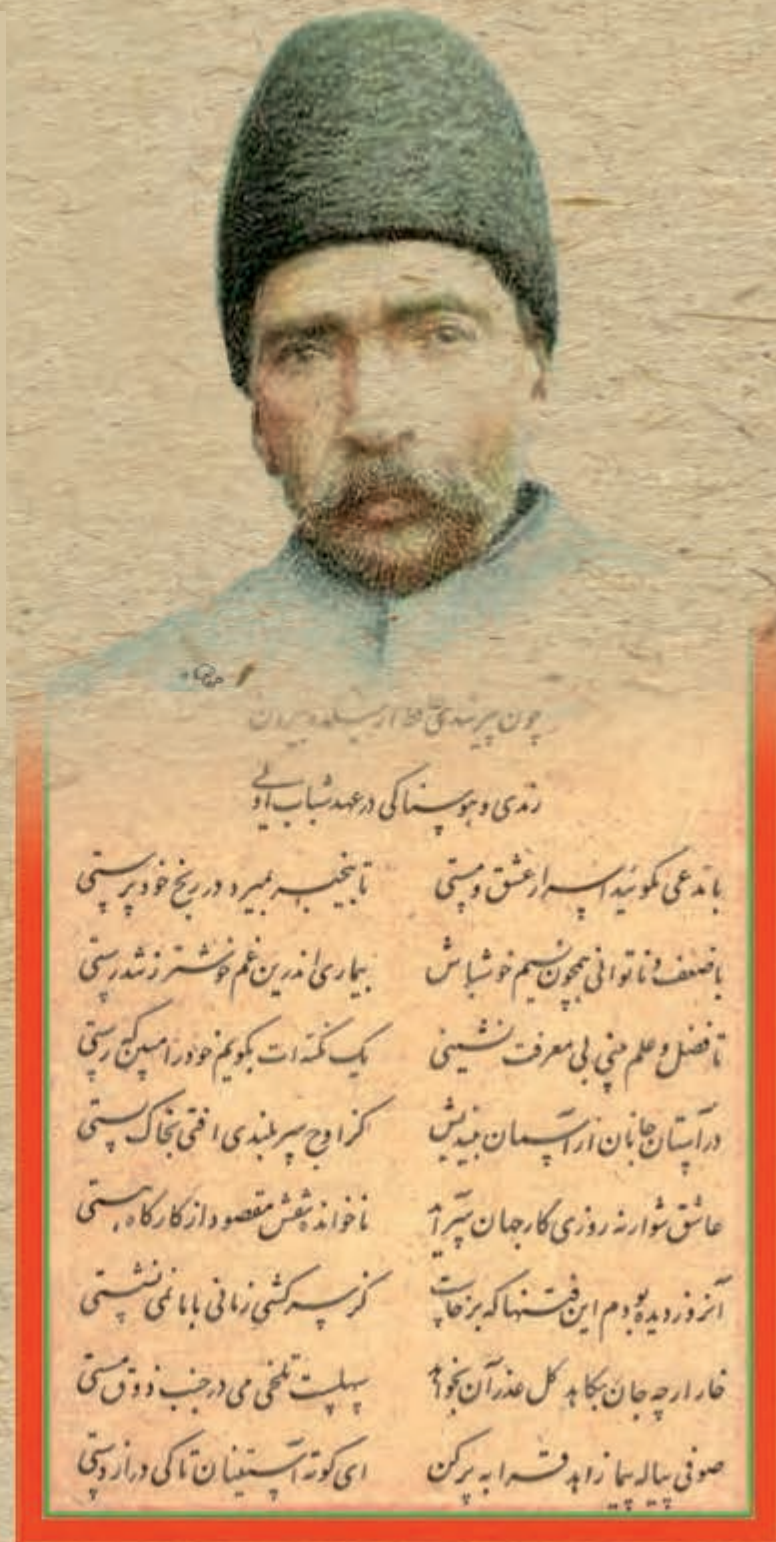 چون پیر شدی حافظ از میکده بیرون
رندی و هوسناکی در عهد شباب اولی
با مدعی مگوئید اسرار عشق و مستی تا بیخبر بمیرد در رنج خودپرستی
با ضعف و ناتوانی همچون نسیم خوشباش بیماری اندرین غم خوشتر ز تندرستی
تا فضل و علم بینی بی معرفت نشینی یک نکته ات بگویم خود را مبین که رستی
در آستان جانان از آسمان میندیش کز اوج سربلندی افتی بخاک پستی
عاشق شو ار نه روزی کار جهان سر آید ناخوانده نقش مقصود از کارگاه هستی
آنروز دیده بودم این فتنها که برخاست کز سرکشی زمانی با ما نمی نشستی
خار ارچه جان بکاهد گل عذر آن بخواهد سهلست تلخی می در جنب ذوق مستی
صوفی پیاله پیما زاهد قرابه پرکن ای کوته آستینان تا کی درازدستی